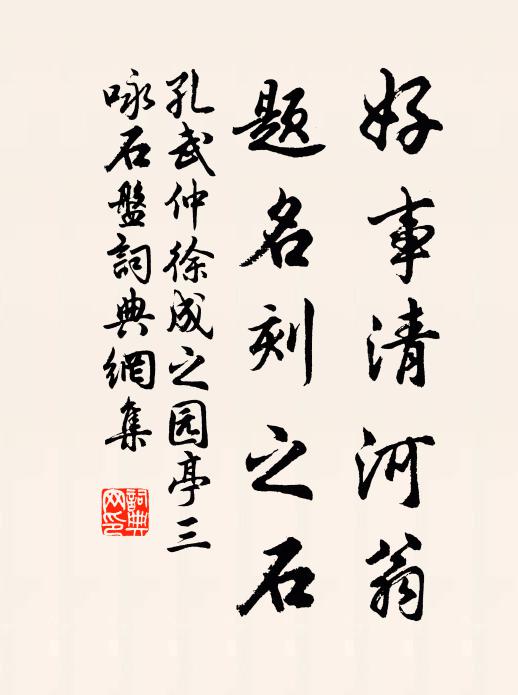 好事清河翁
题名刻之石
孔武仲徐成之园亭三
咏石盤詞典網集
詞典
网印